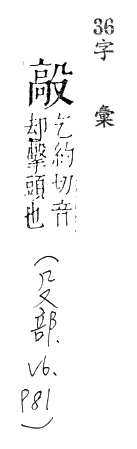 36字彙
毃
乞約切音
却擊頭也
(殳部. V6. P81)